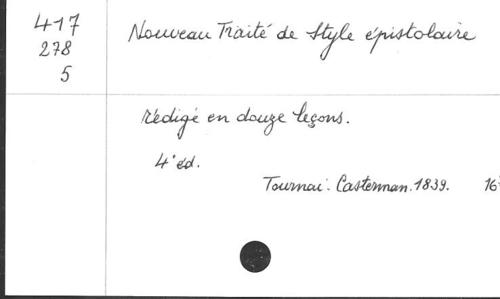 417
278
5
Nouveau Traité de Style épistolaire
rédigé en douze leçons.
4e éd.
Tournai: Casterman. 1839. 16